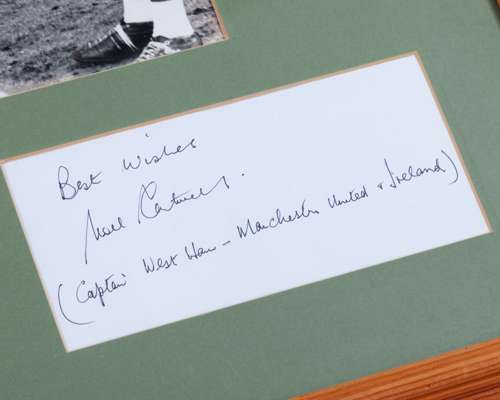 Best Wishes
Noel Cantwell.
(Captain West Ham - Manchester United & Ireland)